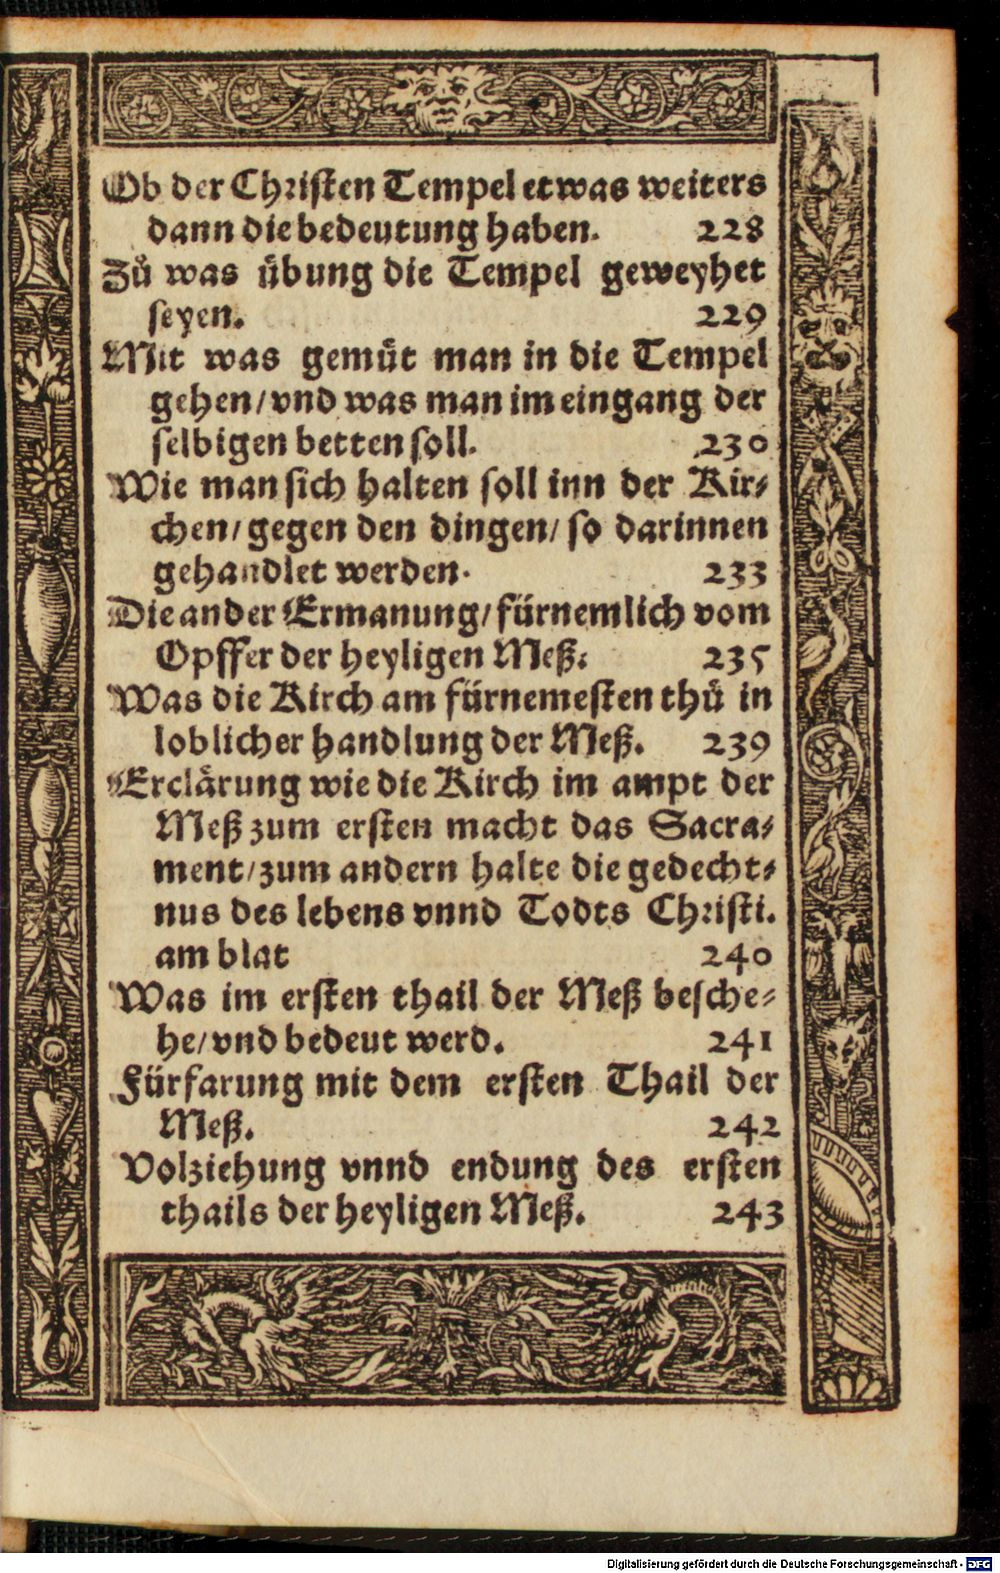 Ob der Christen Tempel etwas weiters
dann die bedeutung haben. 228
Zuͦ was uͤbung die Tempel geweyhet
seyen. 229
Mit was gemuͤt man in die Tempel
gehen/vnd was man im eingang der
selbigen betten soll. 230
Wie man sich halten soll inn der Kir⸗
chen/gegen den dingen/so darinnen
gehandlet werden. 233
Die ander Ermanung/fürnemlich vom
Opffer der heyligen Meß. 235
Was die Kirch am fürnemesten thuͦ in
loblicher handlung der Meß. 239
Erclaͤrung wie die Kirch im ampt der
Meß zum ersten macht das Sacra⸗
ment/zum andern halte die gedecht⸗
nus des lebens vnnd Todts Christi.
am blat 240
Was im ersten thail der Meß besche⸗
he/vnd bedeut werd. 241
Fürfarung mit dem ersten Thail der
Meß. 242
Volziehung vnnd endung des ersten
thails der heyligen Meß. 243
Digitalisierung gefördert durch die Deutsche Forschungsgemeinschaft - DFG